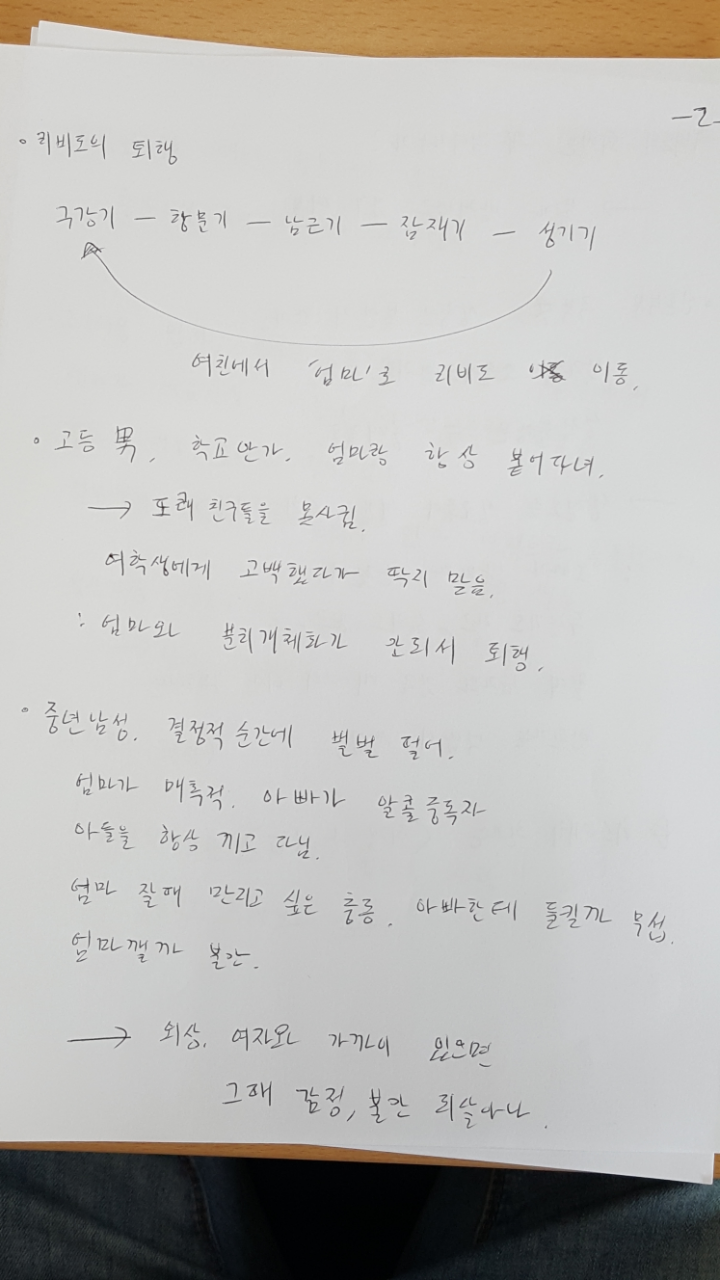 -2-
• 리비도의 퇴행
구강기 — 항문기 — 남근기 — 잠재기 — 성기기
여친에서 '엄마'로 리비도 이동.
• 고등 男. 학교안가. 엄마랑 항상 붙어다녀.
→ 또래 친구들을 못사귐.
여학생에게 고백했다가 딱지 맞음.
: 엄마와 분리개체화가 안되서 퇴행.
• 중년남성. 결정적 순간에 벌벌 떨어.
엄마가 매혹적. 아빠가 알콜중독자
아들을 항상 끼고 다님.
엄마 잘때 만지고 싶은 충동. 아빠한테 들킬까 무섭.
엄마깰까 불안.
→ 외상. 여자와 가까이 있으면
그때 감정, 불안 되살아나.